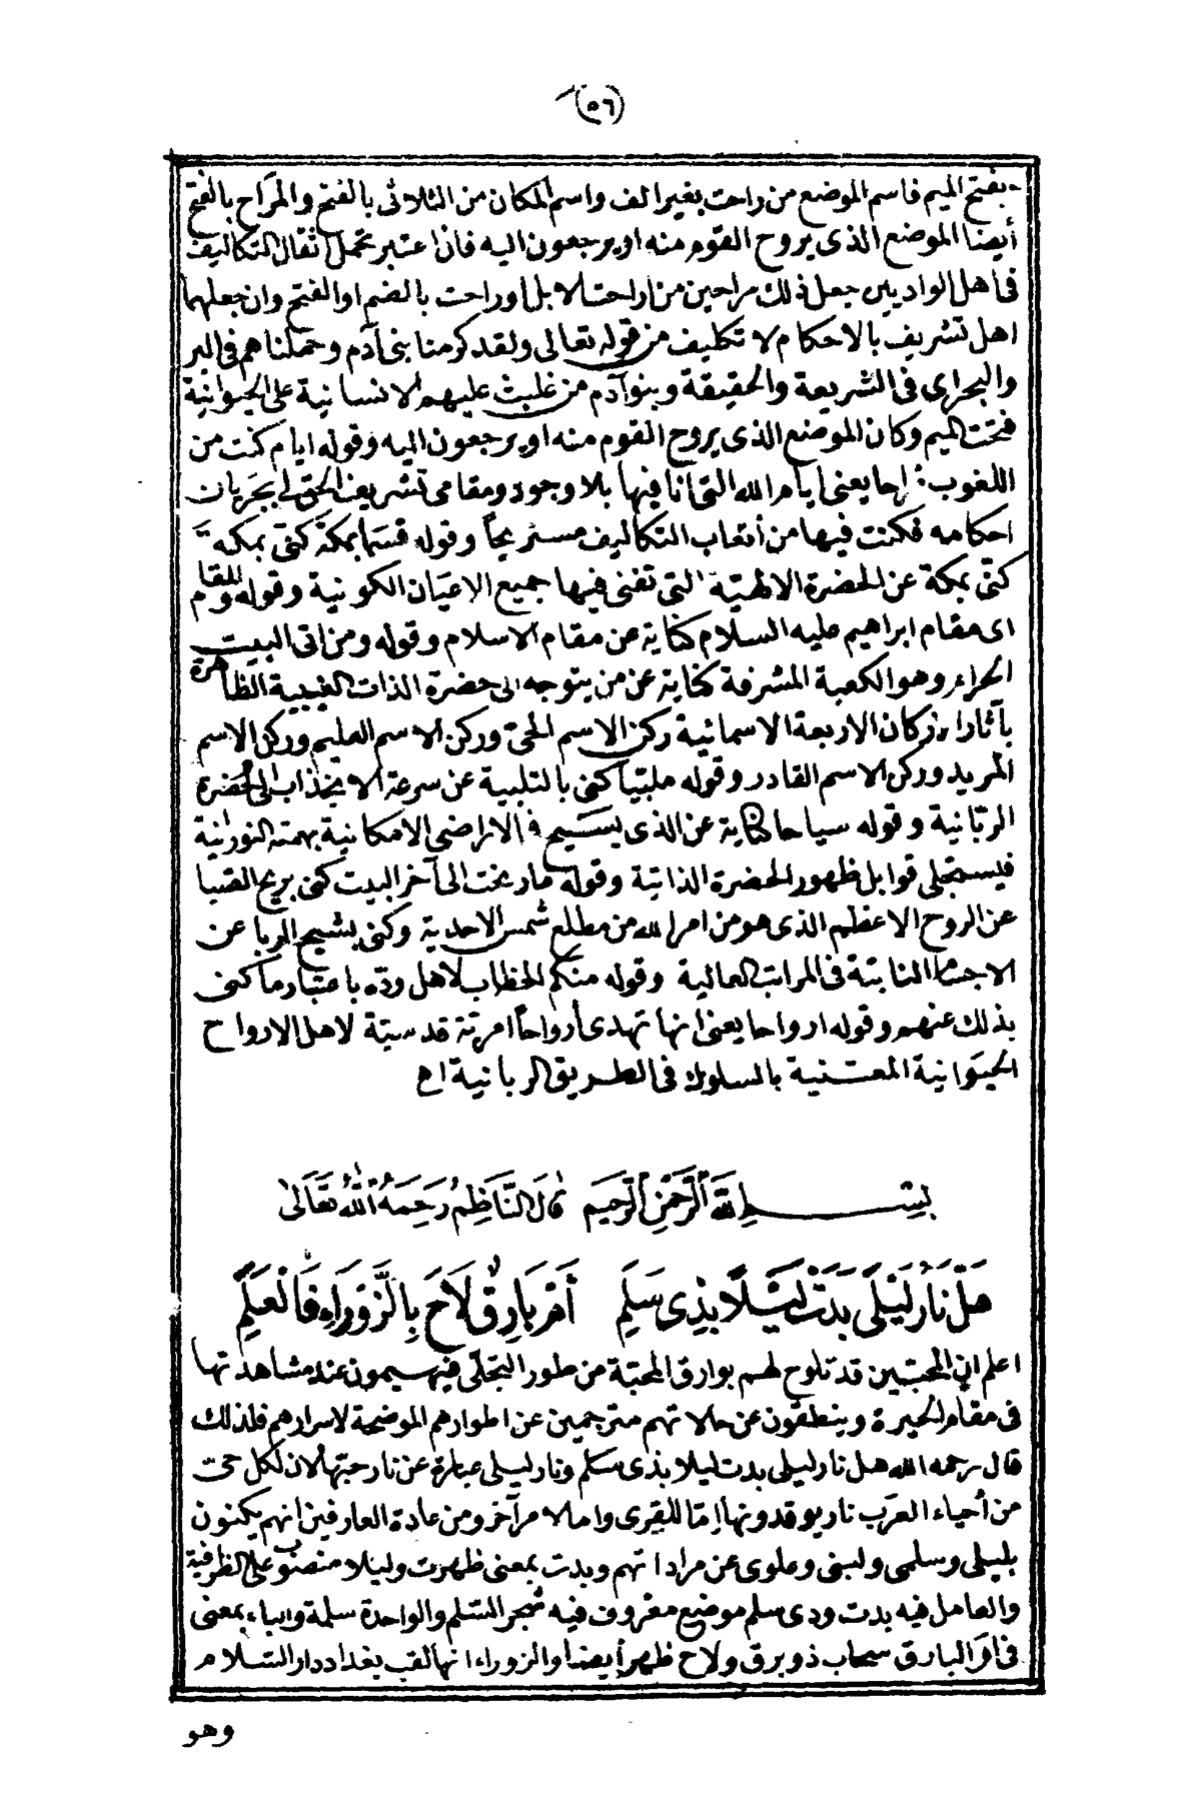 (٥٦)
بفتح الميم فاسم الموضع من راحت بغير الف واسم المكان من الثلاثى بالفتح والمراح بالفتح
أيضا الموضع الذى يروح القوم منه او يرجعون اليه فان اعتبر تحمل اثقال التكاليف
فى اهل الواديين جعل ذلك مراحين من اراحت الابل او راحت بالضم او الفتح وان جعلهما
اهل تشريف بالاحكام لا تكليف من قوله تعالى ولقد كرمنا بنى آدم وحملناهم فى البر
والبحر اى فى الشريعة والحقيقة وبنو آدم من غلبت عليهم الانسانية على الحيوانية
فتحت الميم وكان الموضع الذى يروح القوم منه او يرجعون اليه وقوله ايام كنت من
اللغوب : احا يعنى ايام الله التى انا فيها بلا وجود ومقامى تشريف الحق لى بجريان
احكامه فكنت فيها من أتعاب التكاليف مستريحاً وقوله قسما بمكة كنى بمكة
كنّى بمكة عن الحضرة الالهيّة التى تفنى فيها جميع الاعيان الكونية وقوله والمقام
اى مقام ابراهيم عليه السلام كناية عن مقام الاسلام وقوله ومن اتى البيت
الحرام وهو الكعبة المشرفة كناية عن من يتوجه الى حضرة الذات الغيبية الظاهرة
بآثار اركان الاربعة الاسمائية ركن الاسم الحىّ وركن الاسم العليم وركن الاسم
المريد وركن الاسم القادر وقوله ملبيا كنى بالتلبية عن سرعة الانجذاب الى الحضرة
الربّانية وقوله سياحا كناية عن الذى يسيح فى الاراضى الامكانية بهمته النورانية
فيستجلى قوابل ظهور الحضرة الذاتية وقوله ما رنحت الى آخر البيت كنى بريح الصبا
عن الروح الاعظم الذى هو من امر الله من مطلع شمس الاحدية وكنى بشيح الربا عن
الاجسام النابتة فى المراتب العالية وقوله منكم الخطاب لاهل ودّه باعتبار ما كنى
بذلك عنهم وقوله ارواحا يعنى انها تهدى أرواحاً امريّة قدسيّة لاهل الارواح
الحيوانية المعتنية بالسلوك فى الطريق الربانية اه
بِسْمِ اللَّهِ الرَّحْمَنِ الرَّحِيمِ قَالَ النَّاظِمُ رَحِمَهُ اللَّهُ تَعَالَى
هَلْ نَارُ لَيْلَى بَدَتْ لَيْلًا بِذِى سَلَمِ أَمْ بَارِقٌ لَاحَ بِالزَّوْرَاءِ فَالْعَلَمِ
اعلم ان المحبّين قد تلوح لهم بوارق المحبّة من طور التجلّى فيهيمون عند مشاهدتها
فى مقام الحيرة وينطقون عن حالاتهم مترجمين عن اطوارهم الموضحة لاسرارهم فلذلك
قال رحمه الله هل نار ليلى بدت ليلا بذى سلم ونار ليلى عبارة عن نار حبّها لان لكل حىّ
من أحياء العرب نار يوقدونها امّا للقِرى واما لامر آخر ومن عادة العارفين انهم يكنون
بليلى وسلمى ولبنى وعلوى عن مراداتهم وبدت بمعنى ظهرت وليلا منصوب على الظرفية
والعامل فيه بدت وذى سلم موضع معروف فيه شجر السّلم والواحدة سلمة والباء بمعنى
فى او البارق سحاب ذو برق ولاح ظهر أيضا والزوراء انها لقب بغداد دار السّلام
وهو